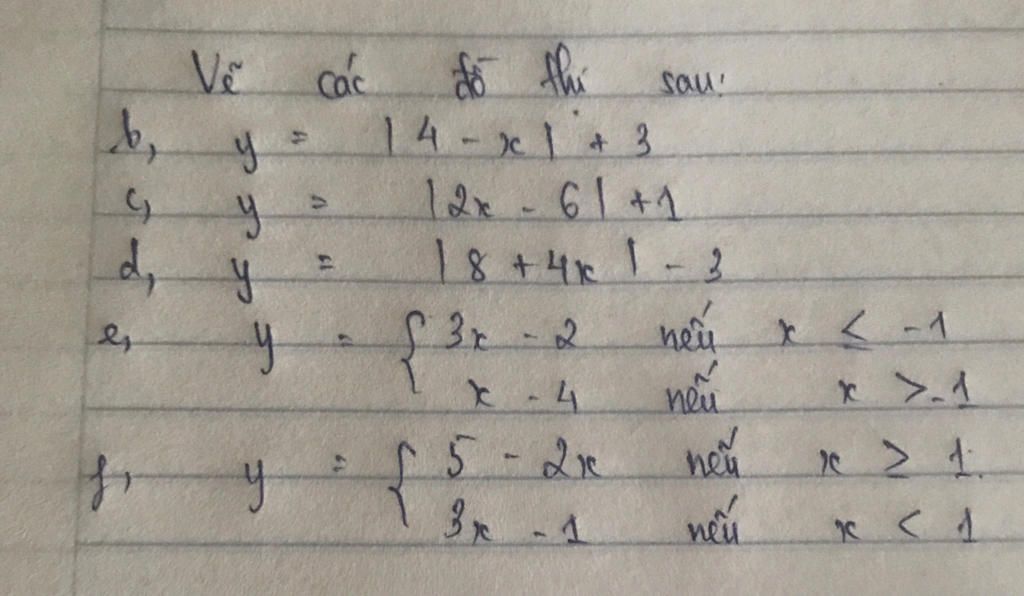 Vẽ các đồ thị sau:
b, y = |4 - x| + 3
c, y = |2x - 6| + 1
d, y = |8 + 4x| - 3
e, y = { 3x - 2 nếu x ≤ -1
x - 4 nếu x > -1
f, y = { 5 - 2x nếu x ≥ 1
3x - 1 nếu x < 1